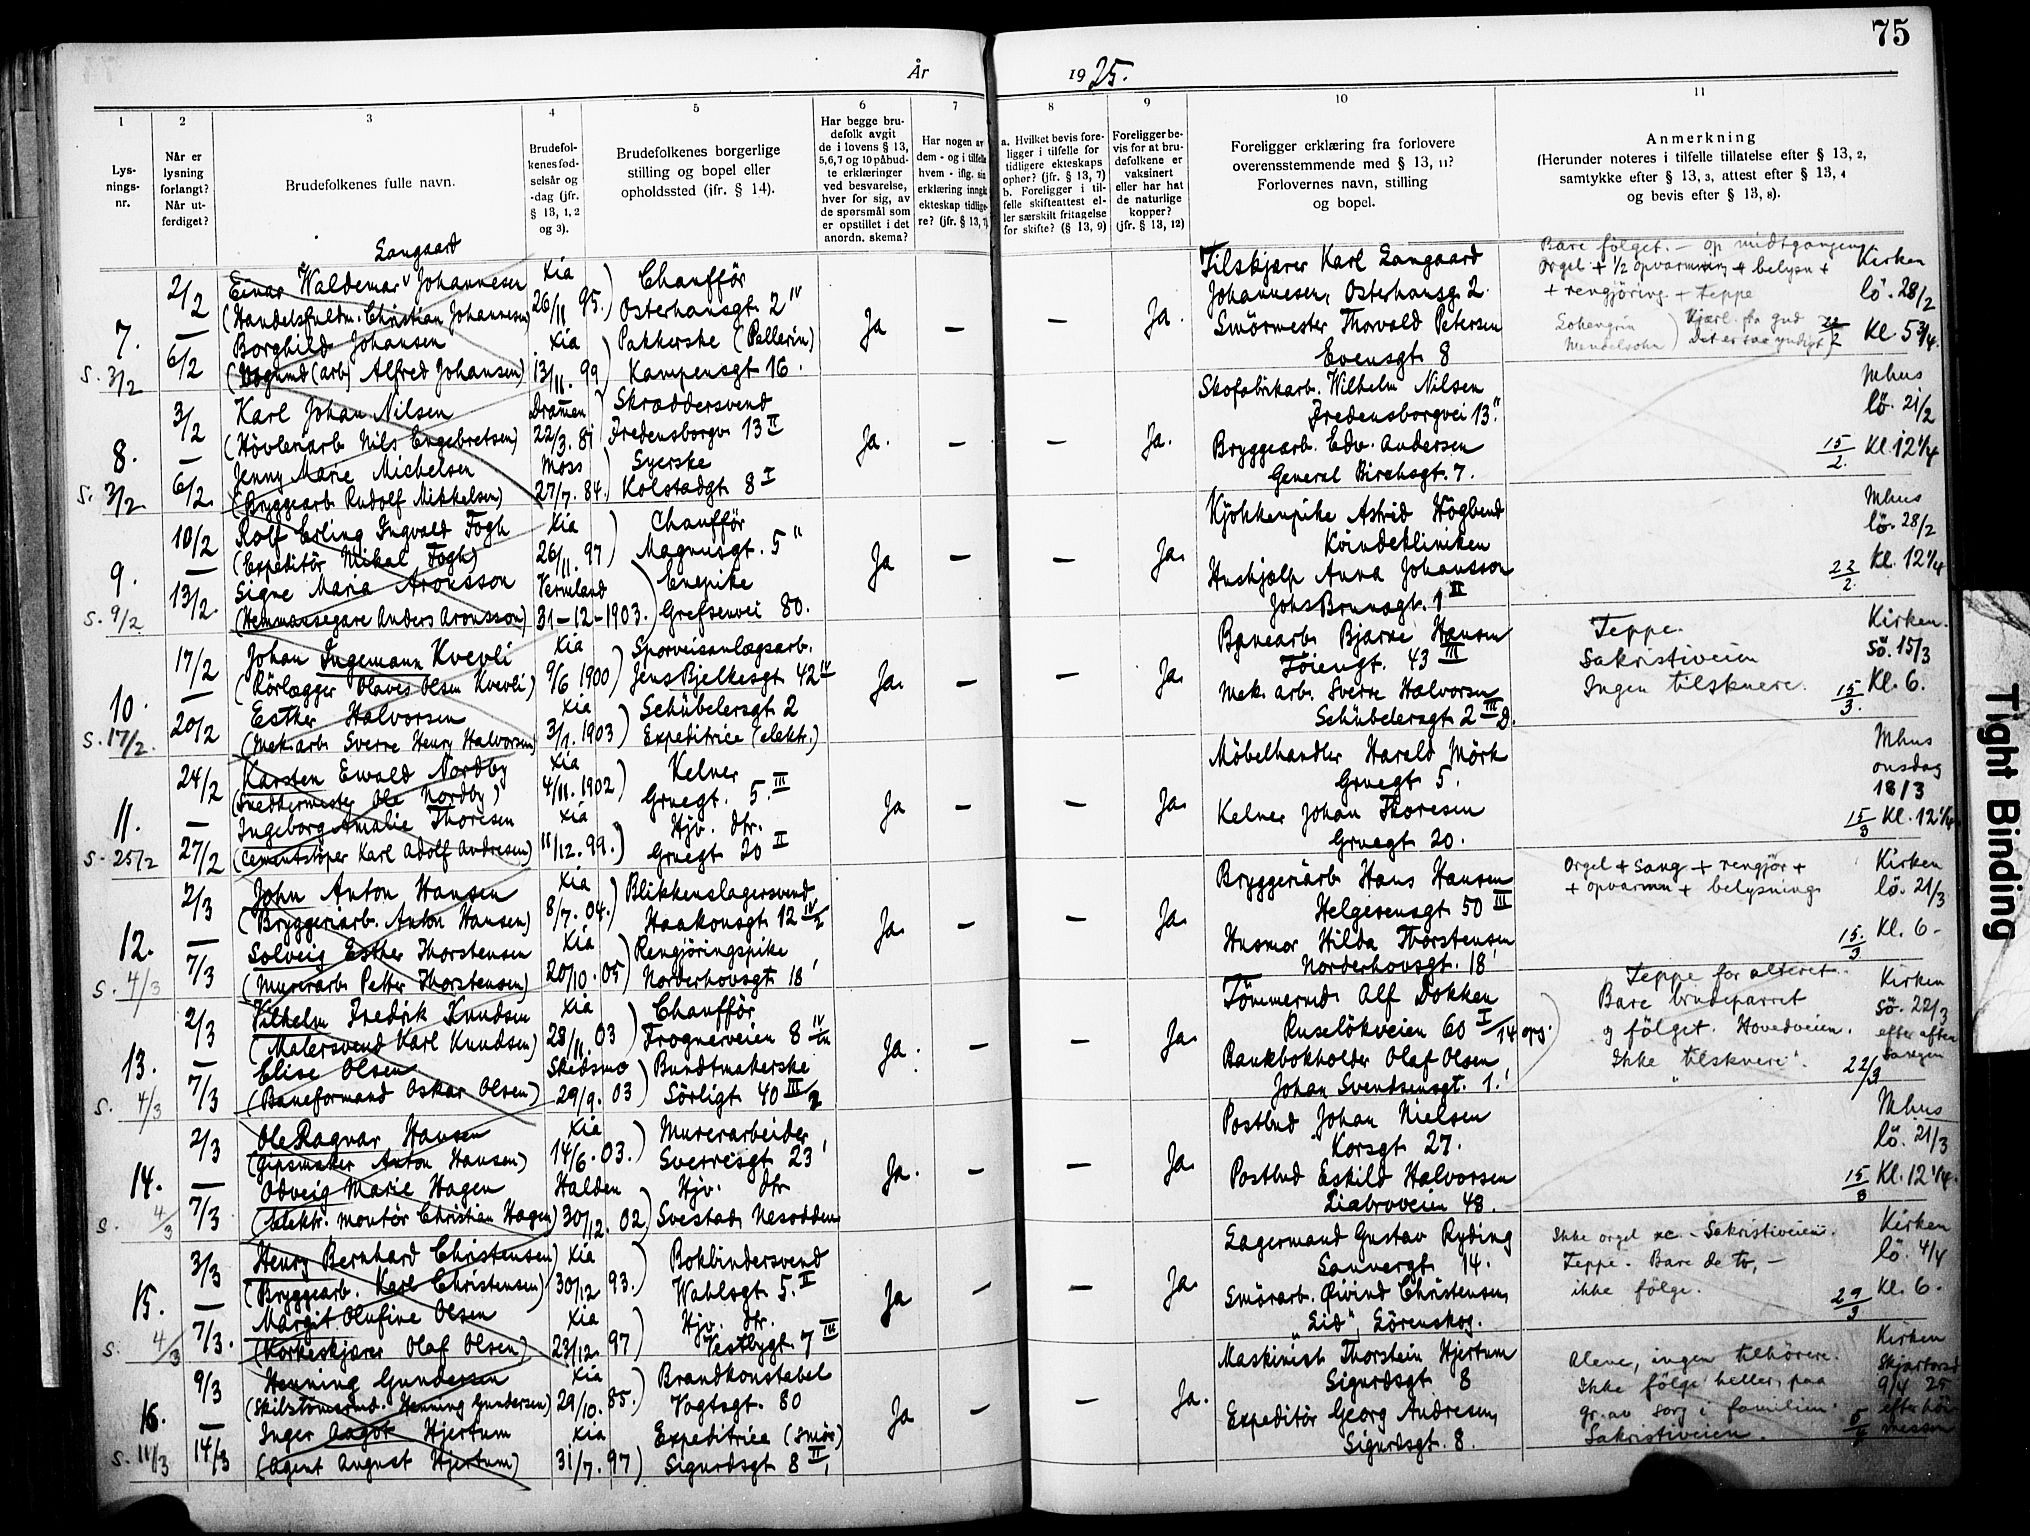 75
År 1925.
1
2
3
4
5
6
7
8
9
10
11
Lys-
nings-
nr.
Når er
lysning
forlangt?
Når ut-
ferdiget?
Brudefolkenes fulle navn.
Brudefol-
kenes fød-
selsår og
-dag (jfr.
§ 13, 1, 2
og 3).
Brudefolkenes borgerlige
stilling og bopel eller
opholdssted (jfr. § 14).
Har begge bru-
defolk avgit
de i lovens § 13,
5,6,7 og 10 påbud-
te erklæringer
ved besvarelse,
hver for sig, av
de spørsmål som
er opstillet i det
anordn. skema?
Har nogen av
dem - og i tilfelle
hvem - iflg. sin
erklæring inngåt
ekteskap tidlige-
re? (jfr. § 13, 7)
a. Hvilket bevis fore-
ligger i tilfelle for
tidligere ekteskaps
ophør? (jfr. § 13, 7)
b. Foreligger i til-
felle skifteattest el-
ler særskilt fritagelse
for skifte? (§ 13, 9)
Foreligger be-
vis for at bru-
defolkene er
vaksinert
eller har hat
de naturlige
kopper?
(jfr. § 13, 12)
Foreligger erklæring fra forlovere
overensstemmende med § 13, 11?
Forlovernes navn, stilling
og bopel.
Anmerkning
(Herunder noteres i tilfelle tillatelse efter § 13, 2,
samtykke efter § 13, 3, attest efter § 13, 4
og bevis efter § 13, 8).
7.
S. 3/2
2/2
—
6/2
Langaard
Einar Waldemar Johannesen
(Handelsfuldm. Christian Johannesen)
Borghild Johansen
(Bøgbind (arb) Alfred Johansen)
Kia
26/11 95.
Kia
13/11. 99
Chaufför
Osterhausgt. 2 IV
Pakkerske (Pellerin)
Kampensgt 16.
Ja
—
—
Ja.
Filskjærer Karl Langaard
Johannesen, Osterhausg. 2.
Smörmester Thorvald Petersen
Evensgt. 8
Bare fölget. — op midtgangen
Orgel + 1/2 opvarmning + belysn +
+ rengjöring + teppe
Lohengrin
Mendelsohn ) Kjærl. fra gud
Det er saa yndigt
22/2
Kirken
lö. 28/2
Kl 5 3/4.
8.
S. 3/2
3/2
—
6/2.
Karl Johan Nilsen
(Hövleriarb Nils Engebretsen)
Jenny Marie Michelsen
(Bryggearb Rudolf Mikkelsen)
Dramen
22/3. 81
Moss
27/7. 84.
Skræddersvend
Fredensborgv. 13 II
Syerske
Kolstadgt 8 I
Ja.
—
—
Ja.
Skofabrikarb. Wilhelm Nilsen
Fredensborgvei 13."
Bryggearb. Edv. Andersen
General Birchsgt. 7.
15/2.
Mhus
lö. 21/2
Kl. 12 1/4
9.
S. 9/2
10/2
—
13/2.
Rolf Erling Ingvald Fogh
(Expeditör Mikal Fogh)
Signe Maria Aronsson
(Hemmansegare Anders Aronsson)
Kia
26/11. 97
Vermland
31-12-1903.
Chaufför
Magnusgt. 5 "
Enepike
Grefsenvei 80.
Ja
—
—
Ja.
Kjökkenpike Astrid Högbend
Kvindekliniken
Hushjælp Anna Johansson
Johs Brunsgt. 1 II
22/2.
Mhus
lö. 28/2
Kl. 12 1/4
10.
S. 17/2.
17/2
—
20/2
Johan Ingemann Kvevli
(Rörlægger Olaves Olsen Kvevli)
Esther Halvorsen
(Mek. arb Sverre Henry Halvorsen)
Kia
9/6 1900
Kia
3/1. 1903
Sporveisanlægsarb.
Jens Bjelkesgt. 42 IV
Schübelersgt 2
Expeditrice (elektr.)
Ja.
—
—
Ja.
Banearb. Bjarne Hansen
Töiengt. 43 III
Mek. arb. Sverre Halvorsen
Schübelersgt 2 III D.
Teppe.
Sakristiveien
Ingen tilskuere.
15/3.
Kirken.
Sö. 15/3
Kl. 6.
11.
S. 25/2
24/2
—
27/2
Karsten Ewald Nordby
(Snedkermester Ole Nordby)
Ingeborg Amalie Thoresen
(Cementstöper Karl Adolf Andresen)
Kia
4/11. 1902
Kia
11/12. 99.
Kelner
Gruegt. 5. III
Hjv. dtr.
Gruegt 20 II
Ja
—
—
Ja.
Möbelhandler Harald Mörk
Gruegt 5.
Kelner Johan Thoresen
Gruegt 20.
15/3
Mhus
onsdag
18/3
Kl. 12 1/4
12.
S. 4/3
2/3
—
7/3
John Anton Hansen
(Bryggeriarb. Anton Hansen)
Solveig Esther Thorstensen
(Murerarb Petter Thorstensen)
Kia
8/7. 04.
Kia
20/10. 05
Blikkenslagersvend
Haakonsgt 12 IV/2
Rengjöringspike
Norderhovsgt 18 '
Ja.
—
—
Ja.
Bryggeriarb. Hans Hansen
Helgesensgt 50 III
Husmor Hilda Thorstensen
Norderhovsgt. 18 '
Orgel + Sang + rengjör +
+ opvarmn + belysning
15./3
Kirken
lö. 21/3
Kl. 6.
13.
S. 4/3
2/3
—
7/3
Vilhelm Fredrik Knudsen
(Malersvend Karl Knudsen)
Elise Olsen
(Baneformand Oskar Olsen)
Kia
28/11. 03
Skedsmo
29/9. 03
Chaufför
Frognerveien 8 IV
Bundtmakerske
Sörligt 40 III/2
Ja.
—
—
Ja.
Tömmermd. Alf Dokken
Ruselökveien 60 I/14 opg.
Bankbokholder Olaf Olsen
Johan Svendsensgt. 1.'
Teppe for alteret.
Bare brudeparret
og fölget. Hovedveien.
Ikke "tilskuere".
22/3
Kirken
sö. 22/3
efter aften
sangen
14.
S. 4/3
2/3
—
7/3
Ole Ragnar Hansen
(Gipsmaker Anton Hansen)
Odveig Marie Hagen
(elektr. montör Christian Hagen)
Kia
14/6. 03.
Halden
30/12. 02
Murerarbeider
Sverresgt 23 '
Hjv. dtr
Svestad, Nesodden
Ja.
—
—
Ja.
Postbud Johan Nielsen
Korsgt 27.
Postbud Eskild Halvorsen
Liabroveien 48.
15/3
Mhus
lö. 21/3
Kl. 12 1/4.
15.
S. 4/3
3/3
—
7/3.
Henry Bernhard Christensen
(Bryggearb. Karl Christensen)
Margit Olufine Olsen
(Korkeskjærer Olaf Olsen)
Kia
30/12 93.
Kia
23/12. 97
Bokbindersvend
Wahlsgt 5. II
Hjv. dtr.
Vestbygt 7 III
Ja
—
—
Ja.
Lagermand Gustav Ryding
Sannergt 14.
Smörarb. Øivind Christensen,
"Eid", Lörenskog.
Ikke orgel xc. - Sakristiveien.
Teppe. Bare de to, -
ikke fölge.
29/3
Kirken
lö. 4/4
Kl. 6.
16.
S. 11/3
9/3
—
14/3
Henning Gundersen
(Skibstömmermd. Henning Gundersen)
Inger Aagot Hjertum
(Agent August Hjertum)
Kia
29/10. 85.
Kia
31/7. 97
Brandkonstabel
Vogtsgt. 80
Expeditrice (Smör)
Sigurdsgt 8 II,
Ja
—
—
Ja.
Maskinist Thorstein Hjertum
Sigurdsgt 8
Expeditör Georg Andresen,
Sigurdsgt. 8.
Alene, ingen tilhörere.
Ikke fölge heller, paa
gr. av sorg i familien.
Sakristiveien.
Kirken
Skjærtorsd
9/4 25
efter höi
messen
Tight Binding